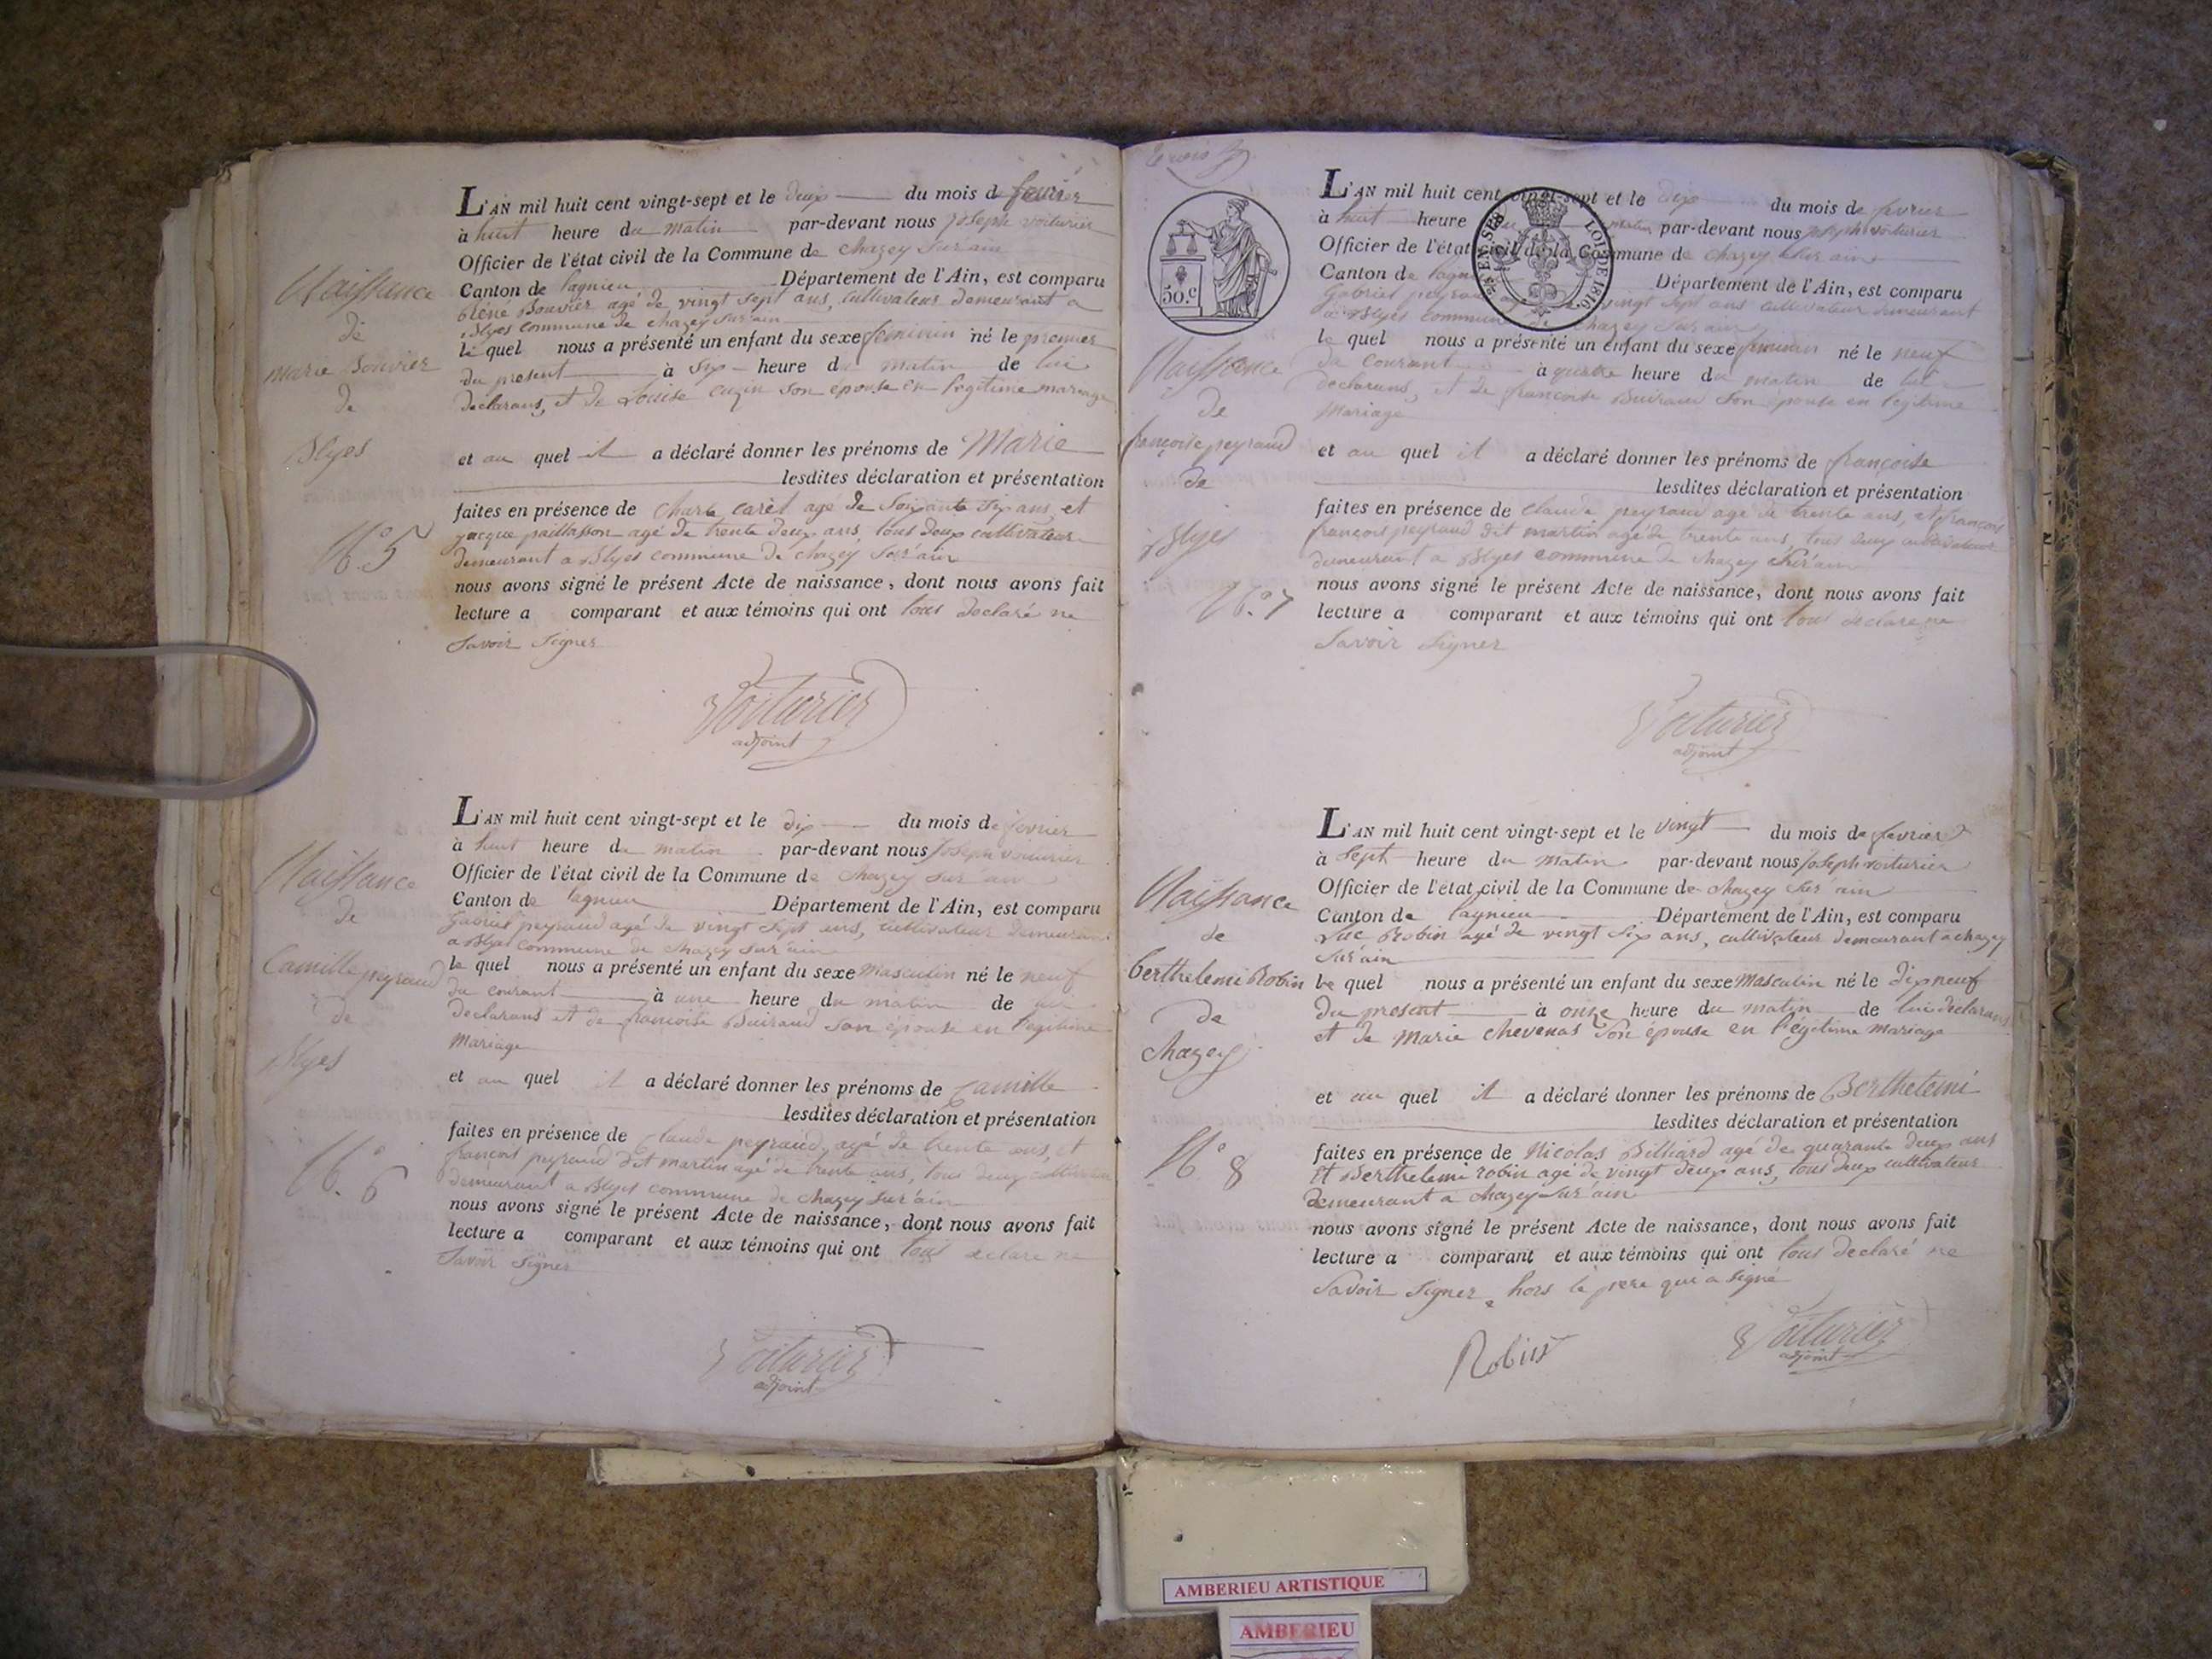 Naissance
de
marie Bouvier
de
Blyes
N.° 5
L'AN mil huit cent vingt-sept et le deux du mois de fevrier
à huit heure du matin par-devant nous joseph voiturier
Officier de l'état civil de la Commune de chazey sur ain
Canton de lagnieu Département de l'Ain, est comparu
Bouvier agé de vingt sept ans, cultivateur demeurant a
Blyes commune de chazey sur ain
le quel nous a présenté un enfant du sexe feminin né le premier
du present à six heure du matin de lui
declarans, et de Louise cuzin son épouse en legitime mariage
et au quel il a déclaré donner les prénoms de Marie
lesdites déclaration et présentation
faites en présence de Charle caret agé de soixante six ans, et
jacque paillasson agé de trente deux ans, tous deux cultivateur
demeurant a Blyes commune de chazey sur ain
nous avons signé le présent Acte de naissance, dont nous avons fait
lecture a comparant et aux témoins qui ont tous declaré ne
savoir signer
Voiturier
adjoint
Naissance
de
Camille peyraud
de
Blyes
N.° 6
L'AN mil huit cent vingt-sept et le dix du mois de fevrier
à huit heure du matin par-devant nous joseph voiturier
Officier de l'état civil de la Commune de chazey sur ain
Canton de lagnieu Département de l'Ain, est comparu
Gabriel peyraud agé de vingt sept ans, cultivateur demeurant
a Blyes commune de chazey sur ain
le quel nous a présenté un enfant du sexe masculin né le neuf
du courant à une heure du matin de lui
declarans et de francoise Buiraud son épouse en legitime
mariage
et au quel il a déclaré donner les prénoms de Camille
lesdites déclaration et présentation
faites en présence de Claude peyraud, agé de trente ans, et
françois peyraud dit martin agé de trente ans, tous deux cultivateur
demeurant a Blyes commune de chazey sur ain
nous avons signé le présent Acte de naissance, dont nous avons fait
lecture a comparant et aux témoins qui ont tous declare ne
savoir signer
Voiturier
adjoint
50.c
LOI DE 1816
Naissance
de
françoise peyraud
de
Blyes
N.° 7
L'AN mil huit cent vingt-sept et le dix du mois de fevrier
à huit heure matin par-devant nous joseph voiturier
Officier de l'état civil de la Commune de chazey sur ain
Canton de lagnieu Département de l'Ain, est comparu
Gabriel peyraud vingt sept ans cultivateur demeurant
a Blyes commune de chazey sur ain
le quel nous a présenté un enfant du sexe feminin né le neuf
du courant à quatre heure du matin de lui
declarans, et de francoise Buiraud son épouse en legitime
mariage
et au quel il a déclaré donner les prénoms de françoise
lesdites déclaration et présentation
faites en présence de claude peyraud agé de trente ans, et françois
françois peyraud dit martin agé de trente ans, tous deux cultivateur
demeurant a Blyes commune de chazey sur ain
nous avons signé le présent Acte de naissance, dont nous avons fait
lecture a comparant et aux témoins qui ont tous declare ne
savoir signer
Voiturier
adjoint
Naissance
de
berthelemi Robin
de
chazey
N.° 8
L'AN mil huit cent vingt-sept et le vingt du mois de fevrier
à sept heure du matin par-devant nous joseph voiturier
Officier de l'état civil de la Commune de chazey sur ain
Canton de lagnieu Département de l'Ain, est comparu
Luc Robin agé de vingt six ans, cultivateur demeurant a chazey
sur ain
le quel nous a présenté un enfant du sexe masculin né le dix neuf
du present à onze heure du matin de lui declarans
et de Marie chevenas son épouse en légitime mariage
et au quel il a déclaré donner les prénoms de Berthelemi
lesdites déclaration et présentation
faites en présence de Nicolas Billiard agé de quarante deux ans
et Berthelemi robin agé de vingt deux ans, tous deux cultivateur
demeurant a chazey sur ain
nous avons signé le présent Acte de naissance, dont nous avons fait
lecture a comparant et aux témoins qui ont tous declaré ne
savoir signer hors le pere qui a signé
Robin
Voiturier
adjoint
AMBERIEU ARTISTIQUE
AMBERIEU